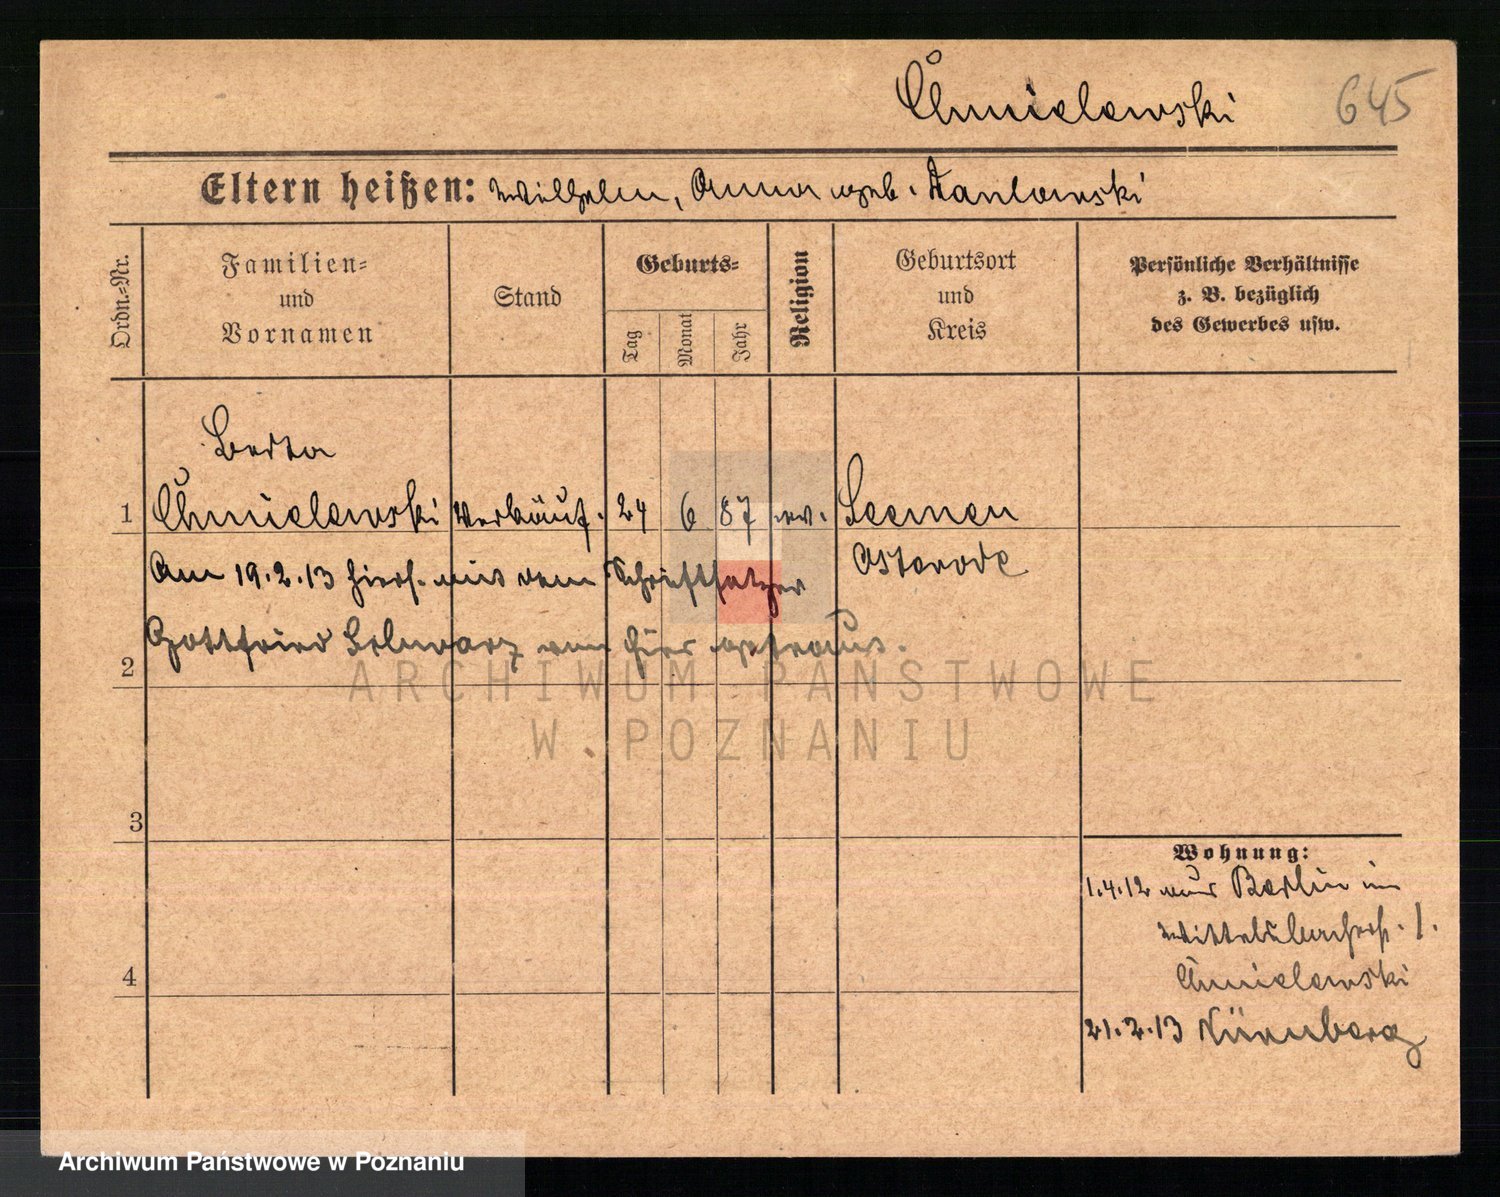 Chmielewski 645
Eltern heißen: Wilhelm, Anna geb.
Ordn.-Nr.
Familien-
und
Vornamen
Stand
Geburts-
Tag
Monat
Jahr
Religion
Geburtsort
und
Kreis
Persönliche Verhältnisse
z. B. bezüglich
des Gewerbes usw.
Berta
1 Chmielewski Verkäuf. 24 6 87 ev. Seemen
Am 19.2.13 hiers. mit dem Schriftsetzer Osterode
2 Gottfried Schwarz von hier getraut.
ARCHIWUM PAŃSTWOWE
W POZNANIU
3
4
Wohnung:
1.4.12 aus Berlin
1.
Chmielewski
21.2.13 Nürnberg
Archiwum Państwowe w Poznaniu